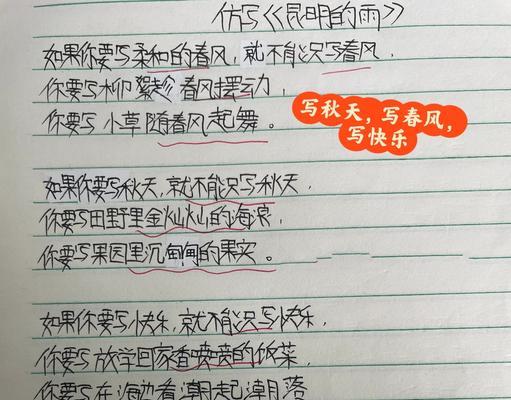 仿写《昆明的雨》
如果你要写柔和的春风,就不能只写春风,
你要写柳絮趁春风摆动,
你要写小草随春风起舞。
写秋天,写春风,
写快乐
如果你要写秋天,就不能只写秋天,
你要写田野里金灿灿的海浪,
你要写果园里沉甸甸的果实。
如果你要写快乐,就不能只写快乐,
你要写放学回家香喷喷的饭菜,
你要写在海边看潮起潮落